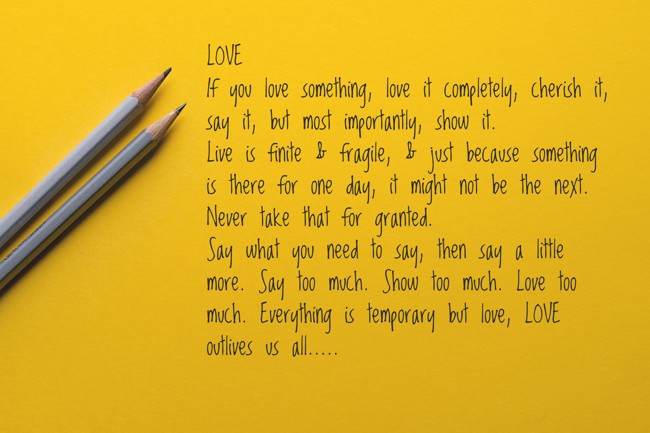 LOVE
If you love something, love it completely, cherish it,
say it, but most importantly, show it.
Live is finite & fragile, & just because something
is there for one day, it might not be the next.
Never take that for granted.
Say what you need to say, then say a little
more. Say too much. Show too much. Love too
much. Everything is temporary but love, LOVE
outlives us all.....